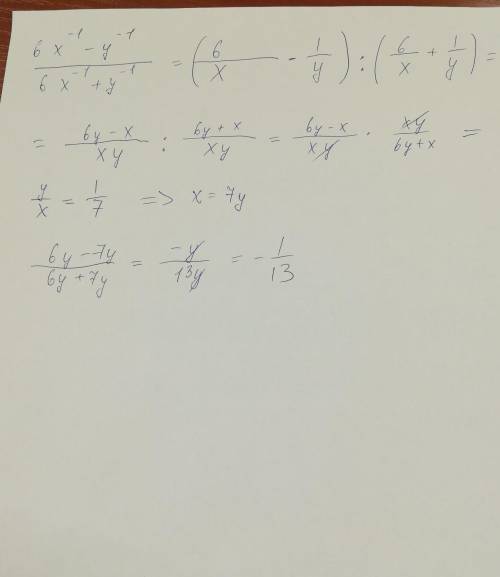 (6x⁻¹ - y⁻¹)/(6x⁻¹ + y⁻¹) = (6/x - 1/y) : (6/x + 1/y) =
= (6y - x)/(xy) : (6y + x)/(xy) = (6y - x)/(xy) · (xy)/(6y + x) =
y/x = 1/7 => x = 7y
(6y - 7y)/(6y + 7y) = (-y)/(13y) = - 1/13